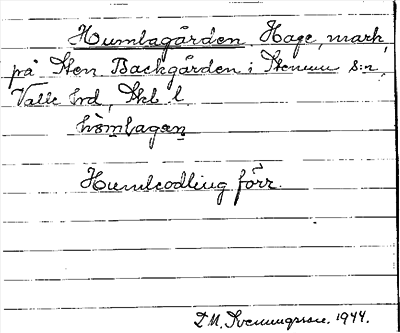 Humlagården, Hage, mark,
på Sten Backgården i Stenum s:n,
Valle hrd, Skbl.
hòmlagan
Humleodling förr.
D.M. Svenningsson. 1944.